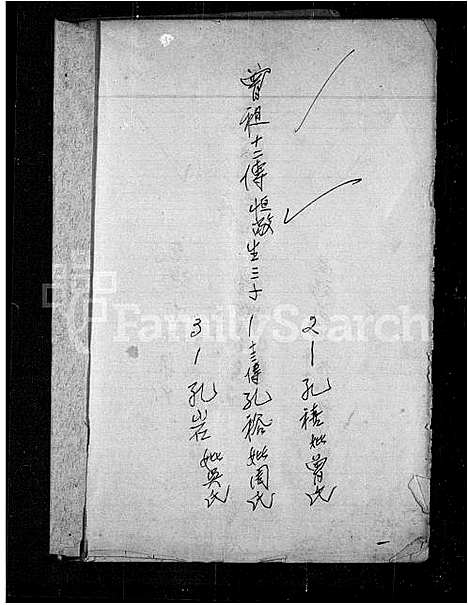 2—孔禧妣曾氏
曾祖十二傳恒敬生三子 1—十三傳孔裕妣周氏
3—孔岩妣吳氏
FamilySearch